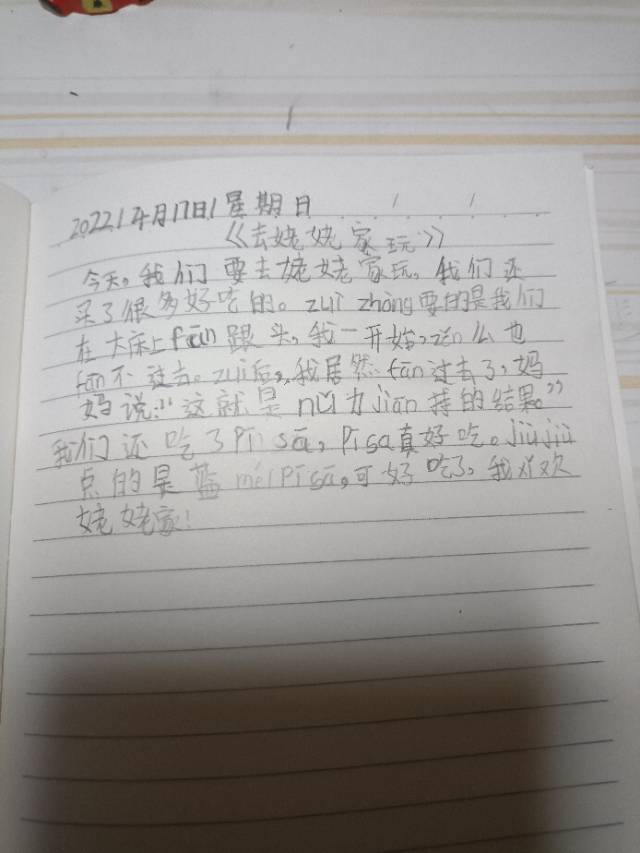 2022年4月17日 星期日
《去姥姥家玩》
今天,我们要去姥姥家玩,我们还
买了很多好吃的。zuì zhòng要的是我们
在大床上fān跟头,我一开始,zěn么也
fān不过去。zuì后,我居然fān过去了,妈
妈说:“这就是nǔ力jiān持的结果。”
我们还吃了Pī sā,Pī sā真好吃。Jiù jiu
点的是蓝méi Pī sā,可好吃了,我欢
姥姥家!